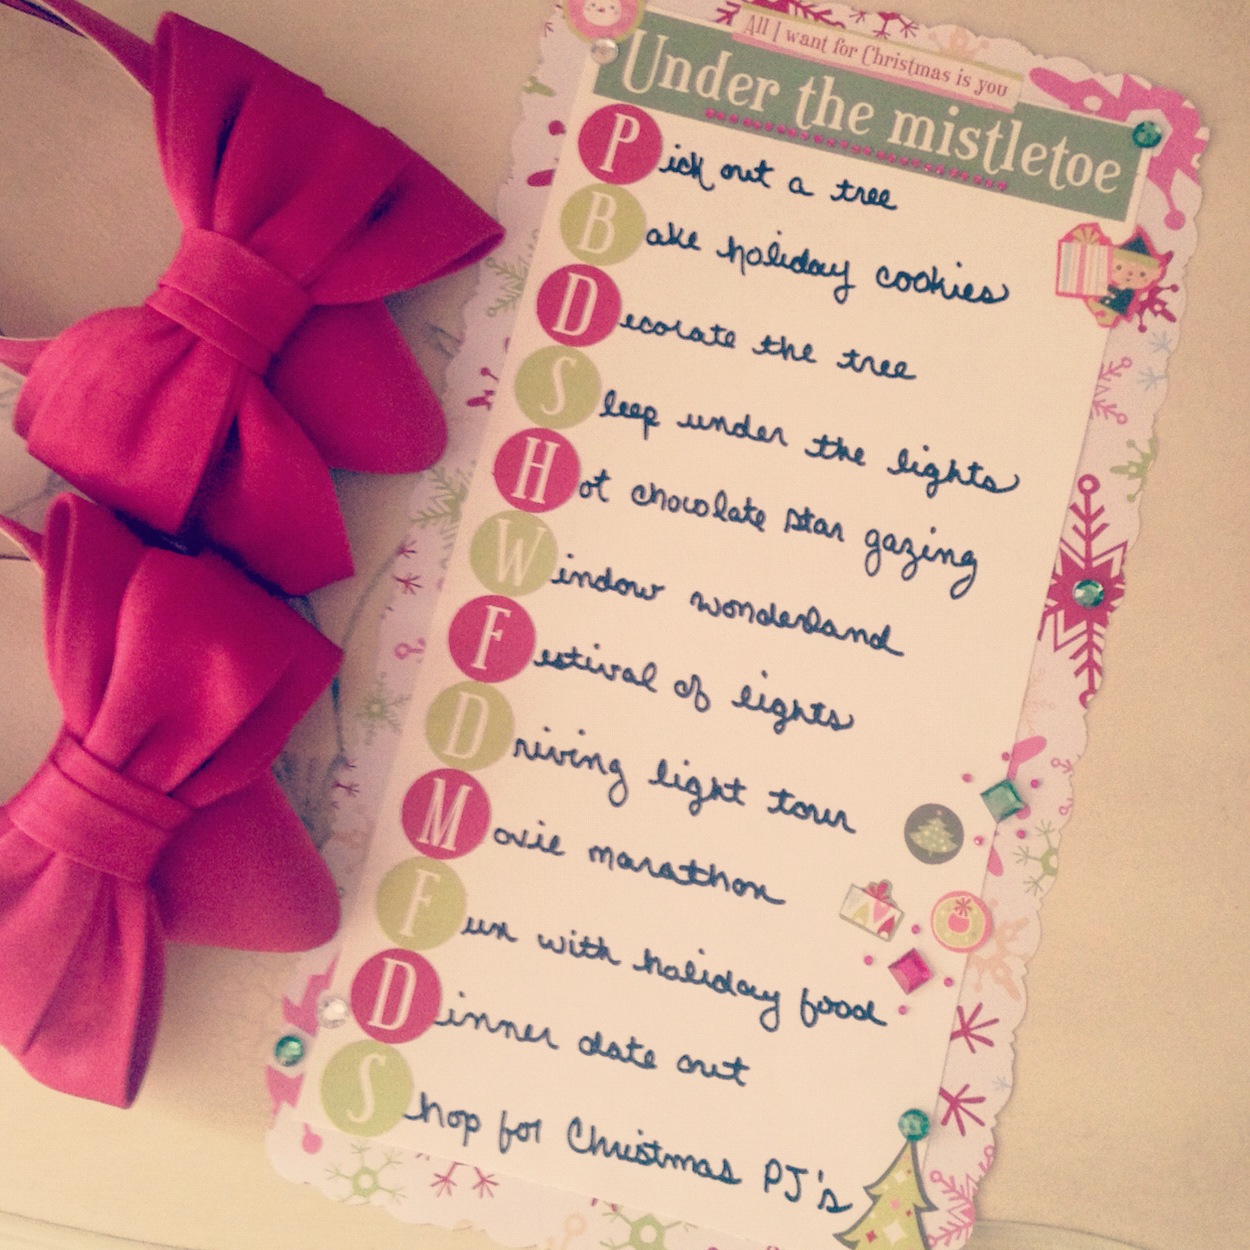 All I want for Christmas is you
Under the mistletoe
Pick out a tree
Bake holiday cookies
Decorate the tree
Sleep under the lights
Hot chocolate star gazing
Window wonderland
Festival of lights
Driving light tour
Movie marathon
Fun with holiday food
Dinner date out
Shop for Christmas PJ's